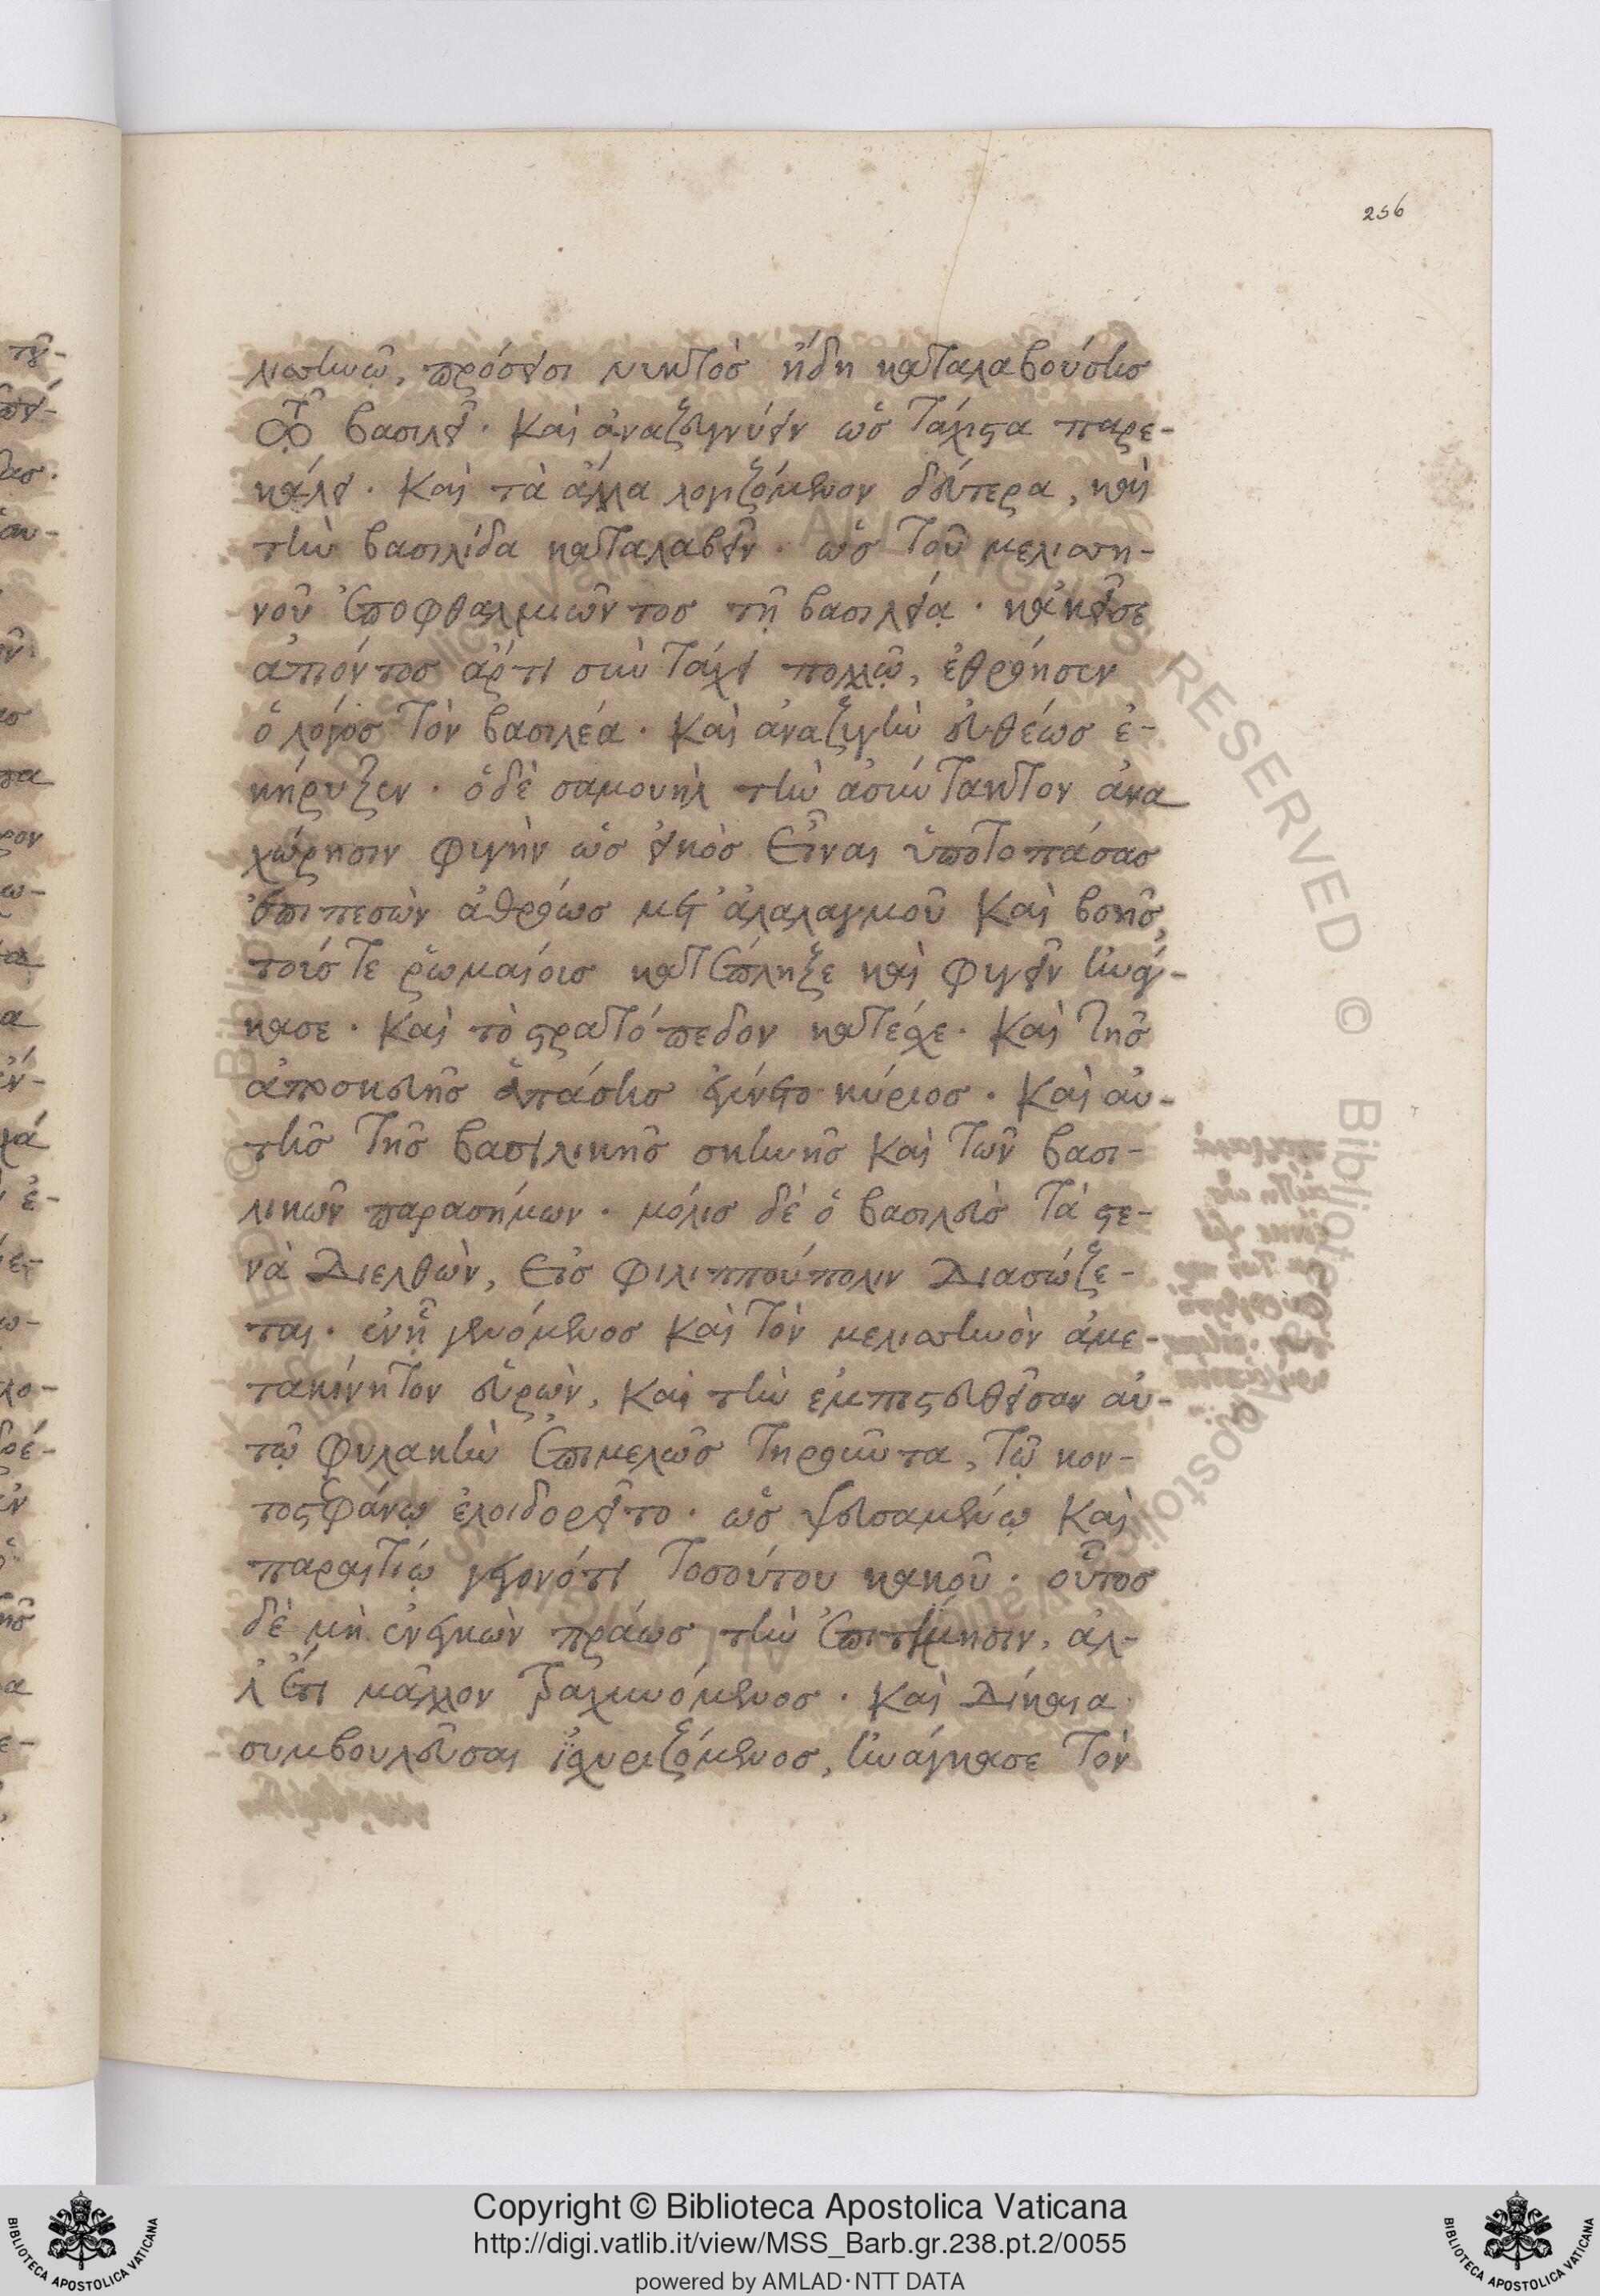 256
λισηνῷ, πρόσεισι νυκτὸσ ἤδη καταλαβούσησ
τῷ βασιλεῖ. καὶ ἀναζευγνύειν ὡσ τάχιστα παρε-
κάλει. καὶ τὰ ἄλλα λογιζόμενον δεύτερα, καὶ
τὴν βασιλίδα καταλαβεῖν. ὡσ τοῦ μελιση-
νοῦ ἐποφθαλμιῶντοσ τῇ βασιλείᾳ. κἀκεῖσε
ἀπιόντοσ ἄρτι σὺν τάχει πολλῷ, ἐθρόησεν
ὁ λόγοσ τὸν βασιλέα. καὶ ἀναζυγὴν εὐθέωσ ἐ-
κήρυξεν. ὁ δὲ σαμουὴλ τὴν ἀσύντακτον ἀνα
χώρησιν φυγὴν ὡσ εἰκὸσ εἶναι ὑποτοπάσασ
ἐπιπεσὼν ἀθρόωσ μετ' ἀλαλαγμοῦ καὶ βοῆσ,
τούσ τε ῥωμαίουσ κατέπληξε καὶ φυγεῖν ἠνάγ-
κασε. καὶ τὸ στρατόπεδον κατέσχε. καὶ τῆσ
ἀποσκευῆσ ἁπάσησ ἐγένετο κύριοσ. καὶ αὐ-
τῆσ τῆσ βασιλικῆσ σκηνῆσ καὶ τῶν βασι-
λικῶν παρασήμων. μόλισ δὲ ὁ βασιλεὺσ τὰ στε-
νὰ διελθὼν, εἰσ φιλιππούπολιν διασώζε-
ται. ἐν ᾗ γενόμενοσ καὶ τὸν μελισηνὸν ἀμε-
τακίνητον εὑρὼν, καὶ τὴν ἐμπιστευθεῖσαν αὐ-
τῷ φυλακὴν ἐπιμελῶσ τηροῦντα, τῷ κον-
τοστεφάνῳ ἐλοιδορεῖτο. ὡσ ψευσαμένῳ καὶ
παραιτίῳ γεγονότι τοσούτου κακοῦ. οὗτοσ
δὲ μὴ ἐνεγκὼν πράωσ τὴν ἐπιτίμησιν, ἀλ-
λ' ἔτι μᾶλλον τραχυνόμενοσ. καὶ δίκαια
συμβουλεῦσαι ἰσχυριζόμενοσ, ἠνάγκασε τὸν
Copyright © Biblioteca Apostolica Vaticana
http://digi.vatlib.it/view/MSS_Barb.gr.238.pt.2/0055
powered by AMLAD·NTT DATA
BIBLIOTECA APOSTOLICA VATICANA
BIBLIOTECA APOSTOLICA VATICANA